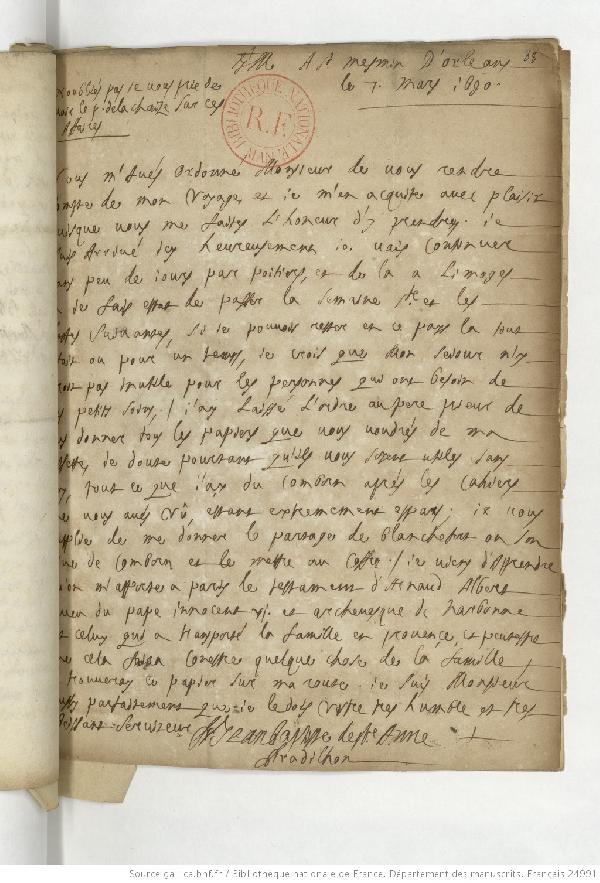 A St mesmin D'orleans 33
le 7. Mars 1690.
oubliés pas ie vous prie de
le p. de la chaize sur ces
affaires
BIBLIOTHEQUE NATIONALE
R.F.
MANUSCRITS
m'aués ordonné Monsieur de vous rendre
de mon voyage, et ie m'en acquite avec plaisir
puisque vous me faites l'honeur d'y prendre. ie
arriué icy heureusement ie vais continuer
peu de iours par poitiers, et de la a Limoges
ie fais estat de passer la semaine Ste et les
suivantes, si ie pouuois rester en ce pays la tout
ou pour un temps, ie crois que mon seiour n'y
pas inutile pour les personnes qui ont besoin de
petits soins, / i'ay laissé l'ordre au pere prieur de
donner tous les papiers que vous voudrés de ma
ie doute pourtant qu'ils vous soient utiles sans
tout ce que i'ay du Comborn aprés les Cahiers
vous aués vû, estant extremement espars; ie vous
supplie de me donner le partage de blanchefort ou
de Comborn et le mettre au Coffre / ie viens d'apprendre
m'apporte a paris le testament d'Arnaud Albert
du pape innocent vj. et archeuesque de Narbonne
celuy qui a transporté la famille en prouence, et peutestre
cela fera conestre quelque chose de la famille
trouueray ce papier sur ma route. ie suis Monsieur
parfaitement que ie le dois Vostre tres humble et tres
obeissant seruiteur Jean Baptiste de Ste Anne
Pradilhon
Source gallica.bnf.fr / Bibliothèque nationale de France. Département des manuscrits. Français 24991